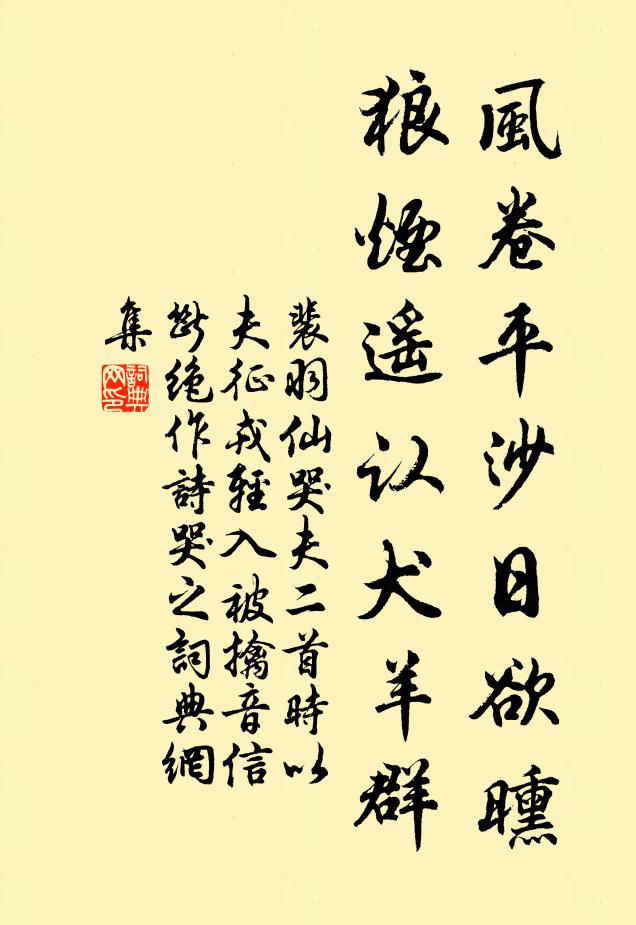 風卷平沙日欲曛
狼煙遥认犬羊群
裴羽仙哭夫二首時以
夫征戎輕入被擒音信
斷絶作詩哭之詞典網
集
詞典
网印